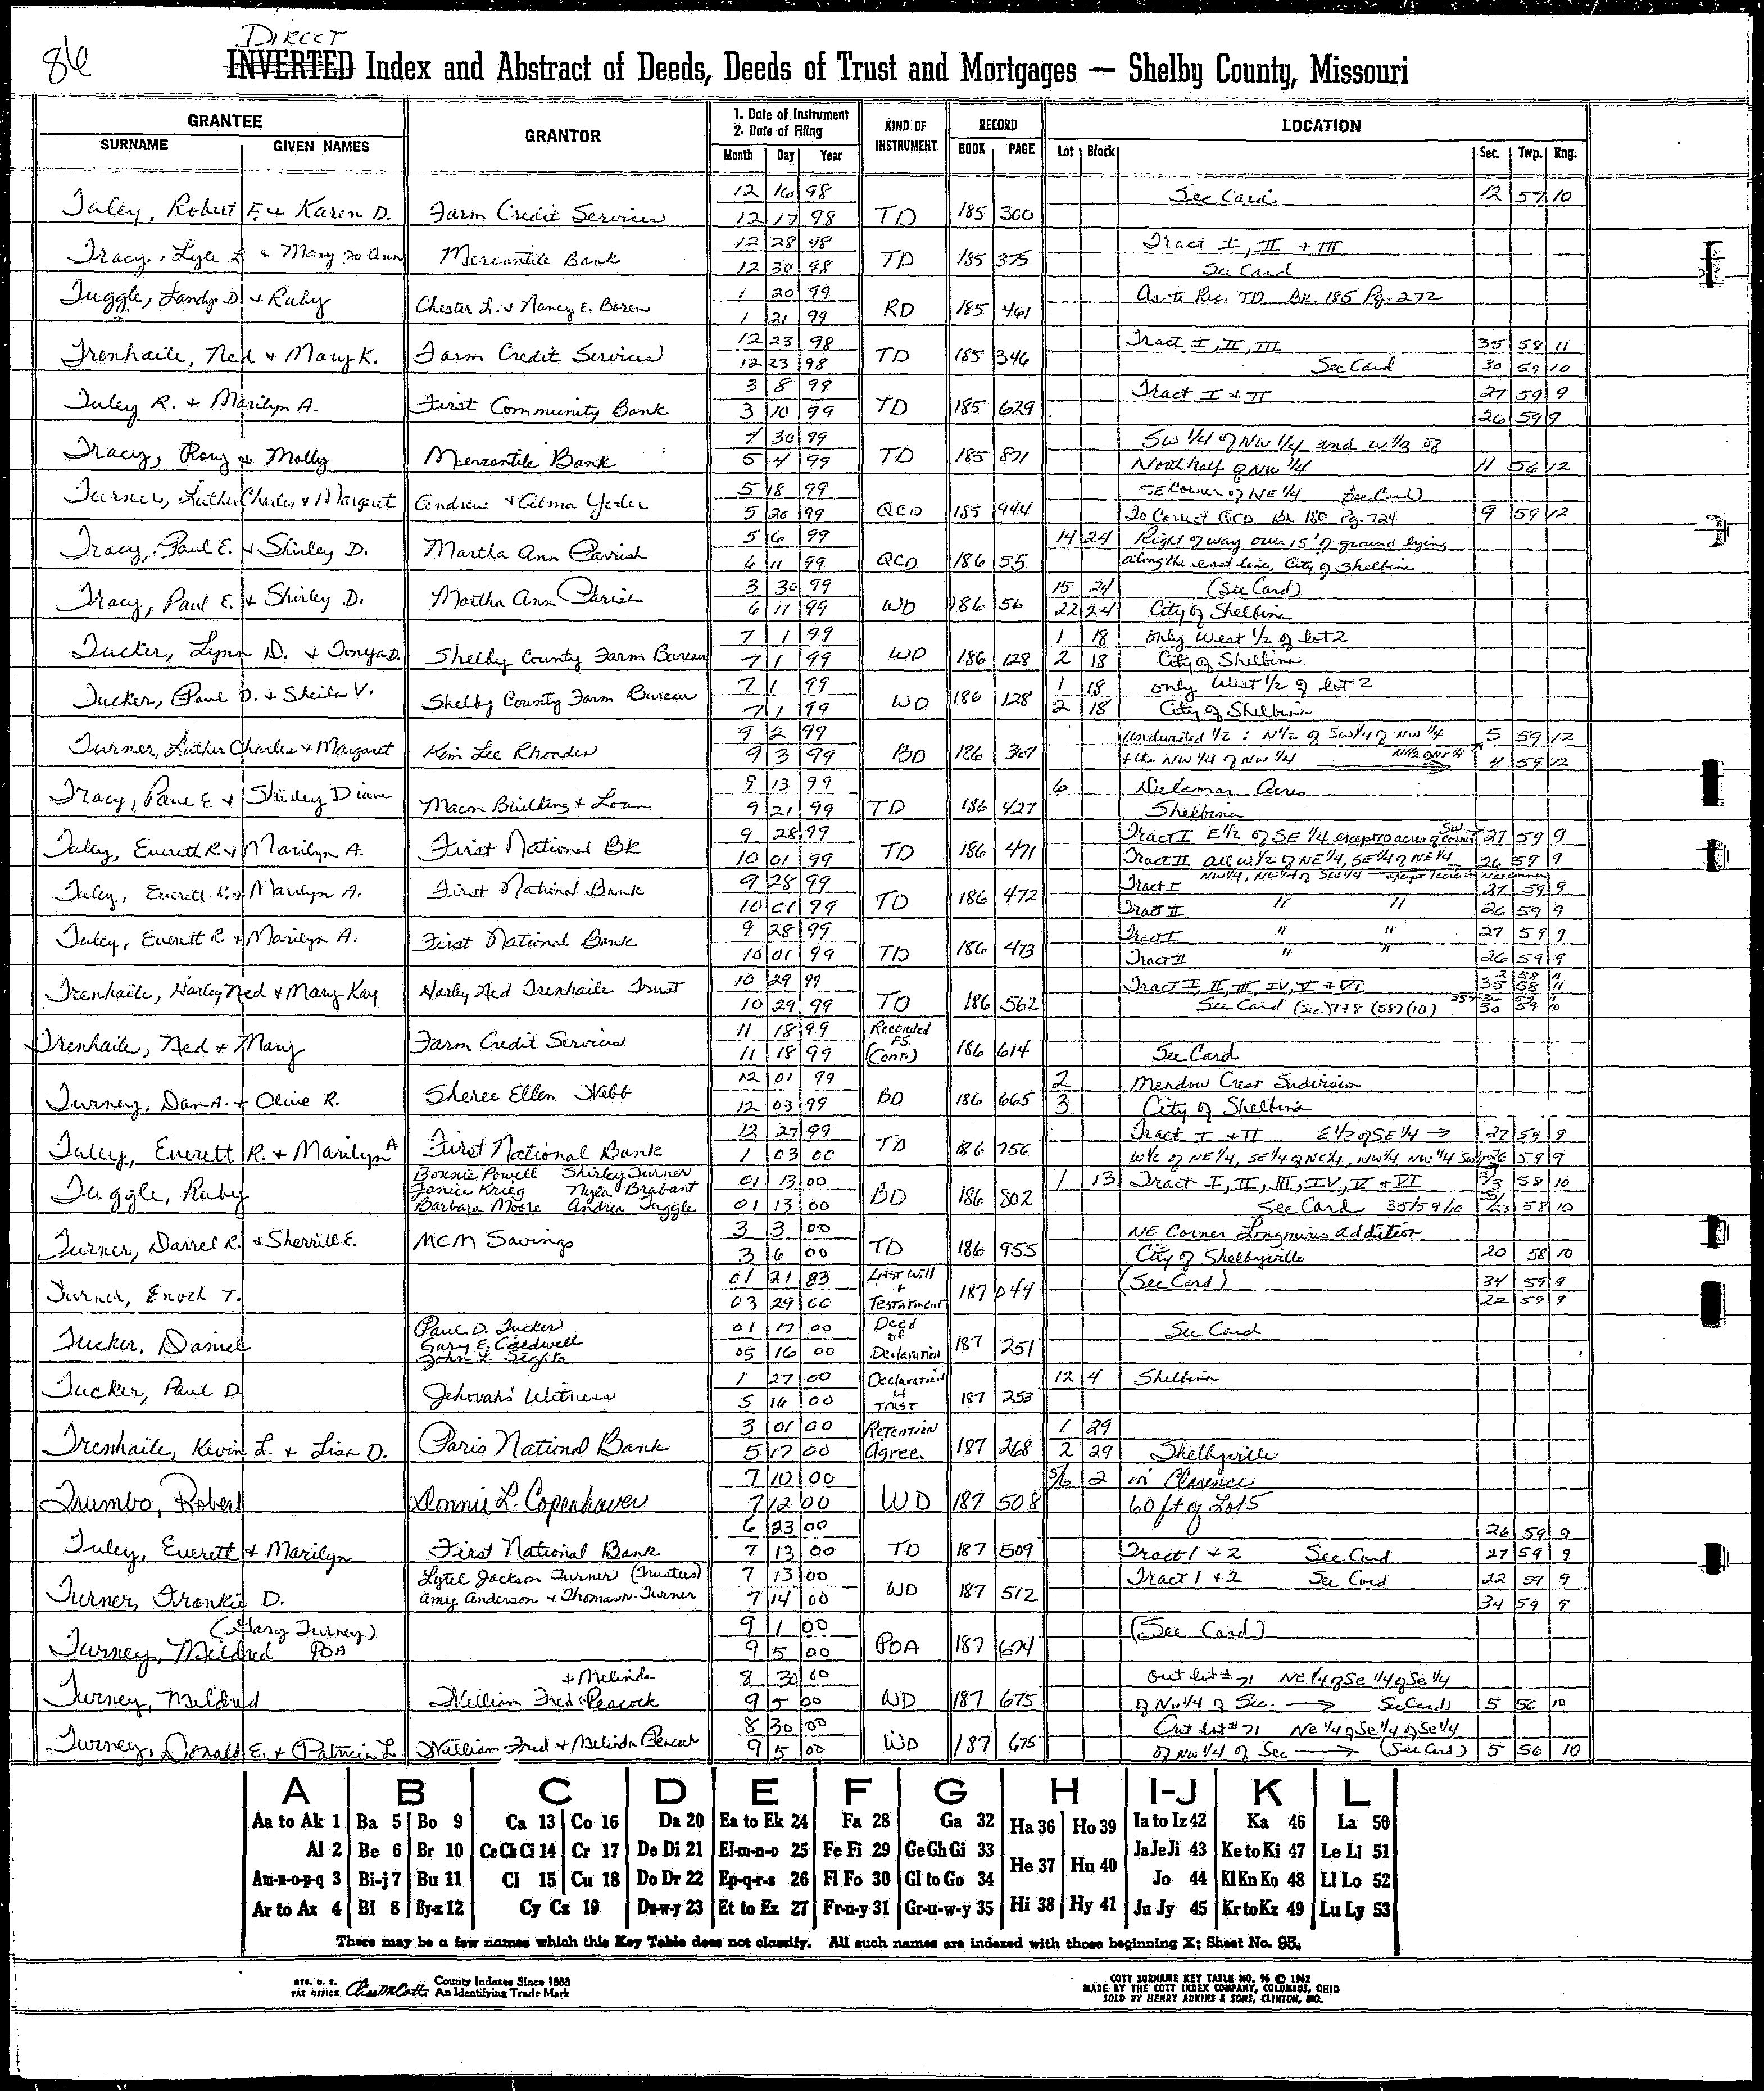 86
DIRECT
INVERTED Index and Abstract of Deeds, Deeds of Trust and Mortgages — Shelby County, Missouri
GRANTEE
SURNAME GIVEN NAMES
GRANTOR
1. Date of Instrument
2. Date of Filing
Month Day Year
KIND OF INSTRUMENT
RECORD
BOOK PAGE
LOCATION
Lot Block Sec. Twp. Rng.
12 16 98 See Card 12 59 10
Tuley, Robert F. + Karen D. Farm Credit Services 12 17 98 TD 185 300
12 28 98 Tract I, II + III
Tracy, Lyle L + Mary Jo Ann Mercantile Bank 12 30 98 TD 185 375 See Card
Tuggle, Landy D. + Ruby 1 20 99 As to Rec. TD Bk. 185 Pg. 272
Chester L. + Nancy E. Boren 1 21 99 RD 185 461
12 23 98 Tract I, II, III 35 58 11
Trenhaile, Ned + Mary K. Farm Credit Services 12 23 98 TD 185 346 See Card 30 59 10
3 8 99 Tract I + II 27 59 9
Tuley R. + Marilyn A. First Community Bank 3 10 99 TD 185 629 26 59 9
4 30 99 SW 1/4 of NW 1/4 and W 1/3 of
Tracy, Rory + Molly Mercantile Bank 5 4 99 TD 185 871 North half of NW 1/4 11 56 12
5 18 99 SE Corner of NE 1/4 (See Card)
Turner, Luther Charles + Margaret Andrew + Alma Yoder 5 20 99 QCD 185 944 To Correct QCD Bk 180 Pg. 724 9 59 12
5 6 99 14 24 Right of way over 15' of ground lying
Tracy, Paul E. + Shirley D. Martha Ann Parrish 6 11 99 QCD 186 55 along the east line, City of Shelbina
3 30 99 15 24 (See Card)
Tracy, Paul E. + Shirley D. Martha Ann Parish 6 11 99 WD 186 56 22 24 City of Shelbina
7 1 99 1 18 only West 1/2 of lot 2
Tucker, Lynn D. + Tonya D. Shelby County Farm Bureau 7 1 99 WD 186 128 2 18 City of Shelbina
7 1 99 1 18 only West 1/2 of lot 2
Tucker, Paul D. + Sheila V. Shelby County Farm Bureau 7 1 99 WD 186 128 2 18 City of Shelbina
9 2 99 Undivided 1/2 : N 1/2 of SW 1/4 of NW 1/4 5 59 12
Turner, Luther Charles + Margaret Kim Lee Rhoades 9 3 99 BD 186 367 + the NW 1/4 of NW 1/4 4 59 12
9 13 99 6 Acres
Tracy, Paul E. + Shirley Diane Macon Building + Loan 9 21 99 TD 186 427 Shelbina
9 28 99 Tract I E 1/2 of SE 1/4 except 10 acres of SW corner 27 59 9
Tuley, Everett R. + Marilyn A. First National Bk 10 01 99 TD 186 471 Tract II all W 1/2 of NE 1/4, SE 1/4 of NE 1/4 26 59 9
NW 1/4, NW 1/4 of SW 1/4 except
9 28 99 Tract I 27 59 9
Tuley, Everett R. + Marilyn A. First National Bank 10 01 99 TD 186 472 Tract II " " 26 59 9
9 28 99 Tract I " " 27 59 9
Tuley, Everett R. + Marilyn A. First National Bank 10 01 99 TD 186 473 Tract II " " 26 59 9
10 29 99 Tract I, II, III, IV, V + VI 35 58 11
Trenhaile, Harley Ned + Mary Kay Harley Ned Trenhaile Trust 10 29 99 TD 186 562 See Card (Sec.) 7+8 (58) (10) 30 59 10
11 18 99 Recorded FS
Trenhaile, Ned + Mary Farm Credit Services 11 18 99 (Cont.) 186 614 See Card
12 01 99 2 Meadow Crest Sudivision
Turney, Dan A. + Olive R. Sheree Ellen Webb 12 03 99 BD 186 665 3 City of Shelbina
12 27 99 Tract I + II E 1/2 of SE 1/4 → 27 59 9
Tuley, Everett R. + Marilyn A First National Bank 1 03 00 TD 186 756 W 1/2 of NE 1/4, SE 1/4 of NE 1/4, NW 1/4 NW 1/4 SW 1/4 26 59 9
Bonnie Powell Shirley Turner
Tuggle, Ruby Janice Krieg Nyla Brabant 01 13 00 BD 186 802 1 13 Tract I, II, III, IV, V + VI 3 58 10
Barbara Moore Andrea Tuggle 01 13 00 See Card 35/59/10 23 58 10
3 3 00 NE Corner Longmires addition
Turner, Darrel R. + Sherrill E. MCM Savings 3 6 00 TD 186 955 City of Shelbyville 20 58 10
01 21 83 Last Will (See Card) 34 59 9
Turner, Enoch T. 03 29 00 + Testament 187 044 22 59 9
Paul D. Tucker 01 17 00 Deed of See Card
Tucker, Daniel Gary E. Caldwell 187 251
John L. Sights 05 16 00 Declaration
1 27 00 Declaration of 12 4 Shelbina
Tucker, Paul D Jehovahs' Witness 5 16 00 Trust 187 253
3 01 00 Retention 1 29
Trenhaile, Kevin L. + Lisa D. Paris National Bank 5 17 00 Agree. 187 268 2 29 Shelbyville
7 10 00 5/6 2 in Clarence
Trumbo, Robert Donnie L. Copenhaver 7 12 00 WD 187 508 60 ft of Lot 5
6 23 00 26 59 9
Tuley, Everett + Marilyn First National Bank 7 13 00 TD 187 509 Tract 1 + 2 See Card 27 59 9
Lytel Jackson Turner (Trustees) 7 13 00 Tract 1 + 2 See Card 22 59 9
Turner, Frankie D. Amy Anderson + Thomas N. Turner 7 14 00 WD 187 512 34 59 9
(Gary Turney) 9 1 00 (See Card)
Turney, Mildred POA 9 5 00 POA 187 674
+ Melinda 8 30 00 Out lot # 71 NE 1/4 of SE 1/4 of SE 1/4
Turney, Mildred William Fred Peacock 9 5 00 WD 187 675 of NW 1/4 of Sec. → See Card) 5 56 10
8 30 00 Out lot # 71 NE 1/4 of SE 1/4 of SE 1/4
Turney, Donald E. + Patricia L William Fred + Melinda Peacock 9 5 00 WD 187 675 of NW 1/4 of Sec → (See Card) 5 56 10
A B C D E F G H I-J K L
Aa to Ak 1 Ba 5 Bo 9 Ca 13 Co 16 Da 20 Ea to Ek 24 Fa 28 Ga 32 Ha 36 Ho 39 Ia to Iz 42 Ka 46 La 50
Al 2 Be 6 Br 10 Ce Ch Ci 14 Cr 17 De Di 21 El-m-n-o 25 Fe Fi 29 Ge Gh Gi 33 He 37 Hu 40 Ja Je Ji 43 Ke to Ki 47 Le Li 51
Am-n-o-p-q 3 Bi-j 7 Bu 11 Cl 15 Cu 18 Do Dr 22 Ep-q-r-s 26 Fl Fo 30 Gl to Go 34 Hi 38 Hy 41 Jo 44 Kl Kn Ko 48 Ll Lo 52
Ar to Az 4 Bl 8 By-z 12 Cy Cz 19 Du-w-y 23 Et to Ez 27 Fr-u-y 31 Gr-u-w-y 35 Ju Jy 45 Kr to Kz 49 Lu Ly 53
There may be a few names which this Key Table does not classify. All such names are indexed with those beginning X; Sheet No. 95.
REG. U. S. PAT OFFICE County Indexes Since 1888 An Identifying Trade Mark
COTT SURNAME KEY TABLE NO. 96 © 1962
MADE BY THE COTT INDEX COMPANY, COLUMBUS, OHIO
SOLD BY HENRY ADKINS & SONS, CLINTON, MO.